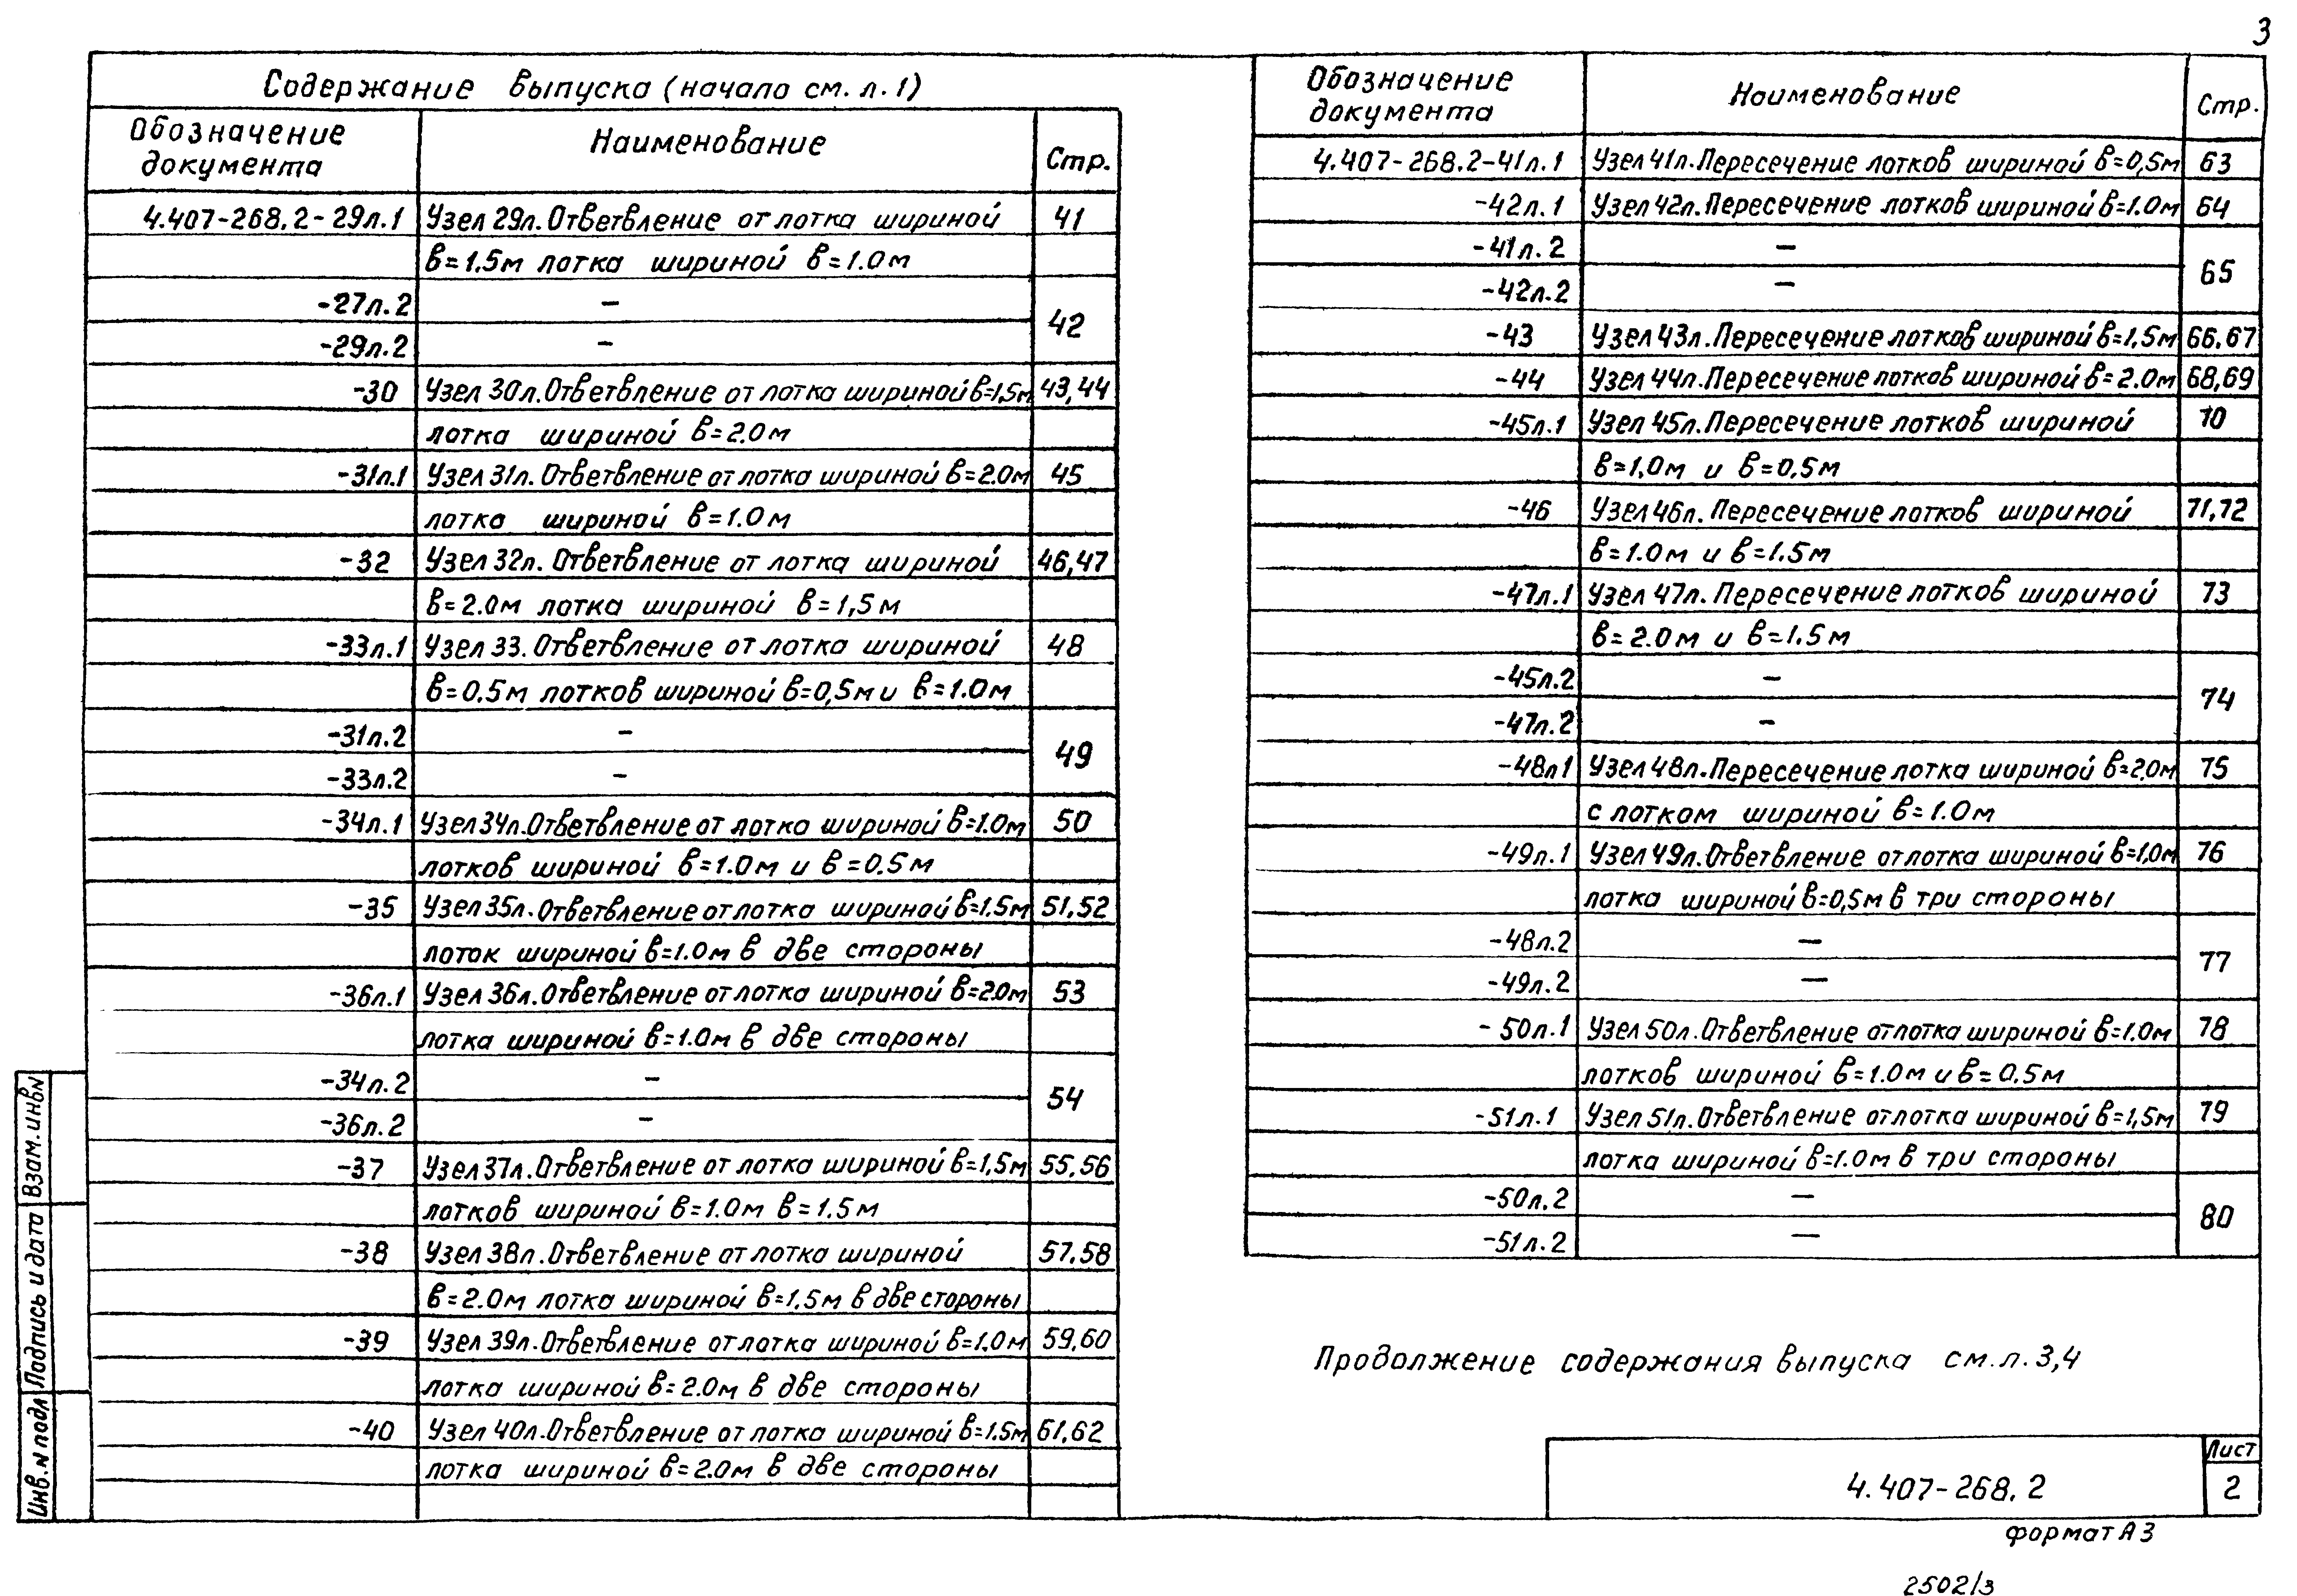 3
Содержание выпуска (начало см. л. 1)
Обозначение документа Наименование Стр.
4.407-268.2-29л.1 Узел 29л. Ответвление от лотка шириной 41
в=1.5м лотка шириной в=1.0м
-27л.2 – 42
-29л.2 –
-30 Узел 30л. Ответвление от лотка шириной в=1,5м 43,44
лотка шириной в=2.0м
-31л.1 Узел 31л. Ответвление от лотка шириной в=2.0м 45
лотка шириной в=1.0м
-32 Узел 32л. Ответвление от лотка шириной 46,47
в=2.0м лотка шириной в=1,5м
-33л.1 Узел 33. Ответвление от лотка шириной 48
в=0.5м лотков шириной в=0,5м и в=1.0м
-31л.2 – 49
-33л.2 –
-34л.1 Узел 34л. Ответвление от лотка шириной в=1.0м 50
лотков шириной в=1.0м и в=0.5м
-35 Узел 35л. Ответвление от лотка шириной в=1.5м 51,52
лоток шириной в=1.0м в две стороны
-36л.1 Узел 36л. Ответвление от лотка шириной в=2.0м 53
лотка шириной в=1.0м в две стороны
-34л.2 – 54
-36л.2 –
-37 Узел 37л. Ответвление от лотка шириной в=1,5м 55,56
лотков шириной в=1.0м в=1.5м
-38 Узел 38л. Ответвление от лотка шириной 57,58
в=2.0м лотка шириной в=1,5м в две стороны
-39 Узел 39л. Ответвление от лотка шириной в=1.0м 59,60
лотка шириной в=2.0м в две стороны
-40 Узел 40л. Ответвление от лотка шириной в=1.5м 61,62
лотка шириной в=2.0м в две стороны
Обозначение документа Наименование Стр.
4.407-268.2-41л.1 Узел 41л. Пересечение лотков шириной в=0,5м 63
-42л.1 Узел 42л. Пересечение лотков шириной в=1.0м 64
-41л.2 – 65
-42л.2 –
-43 Узел 43л. Пересечение лотков шириной в=1,5м 66,67
-44 Узел 44л. Пересечение лотков шириной в=2.0м 68,69
-45л.1 Узел 45л. Пересечение лотков шириной 70
в=1,0м и в=0,5м
-46 Узел 46л. Пересечение лотков шириной 71,72
в=1.0м и в=1.5м
-47л.1 Узел 47л. Пересечение лотков шириной 73
в=2.0м и в=1.5м
-45л.2 – 74
-47л.2 –
-48л1 Узел 48л. Пересечение лотка шириной в=2,0м 75
с лотком шириной в=1.0м
-49л.1 Узел 49л. Ответвление от лотка шириной в=1,0м 76
лотка шириной в=0,5м в три стороны
-48л.2 – 77
-49л.2 –
-50л.1 Узел 50л. Ответвление от лотка шириной в=1.0м 78
лотков шириной в=1.0м и в=0.5м
-51л.1 Узел 51л. Ответвление от лотка шириной в=1,5м 79
лотка шириной в=1.0м в три стороны
-50л.2 – 80
-51л.2 –
Продолжение содержания выпуска см. л. 3,4
4.407-268.2
Лист
2
формат А3
2502/3
Взам. инв N
Подпись и дата
Инв. N подл